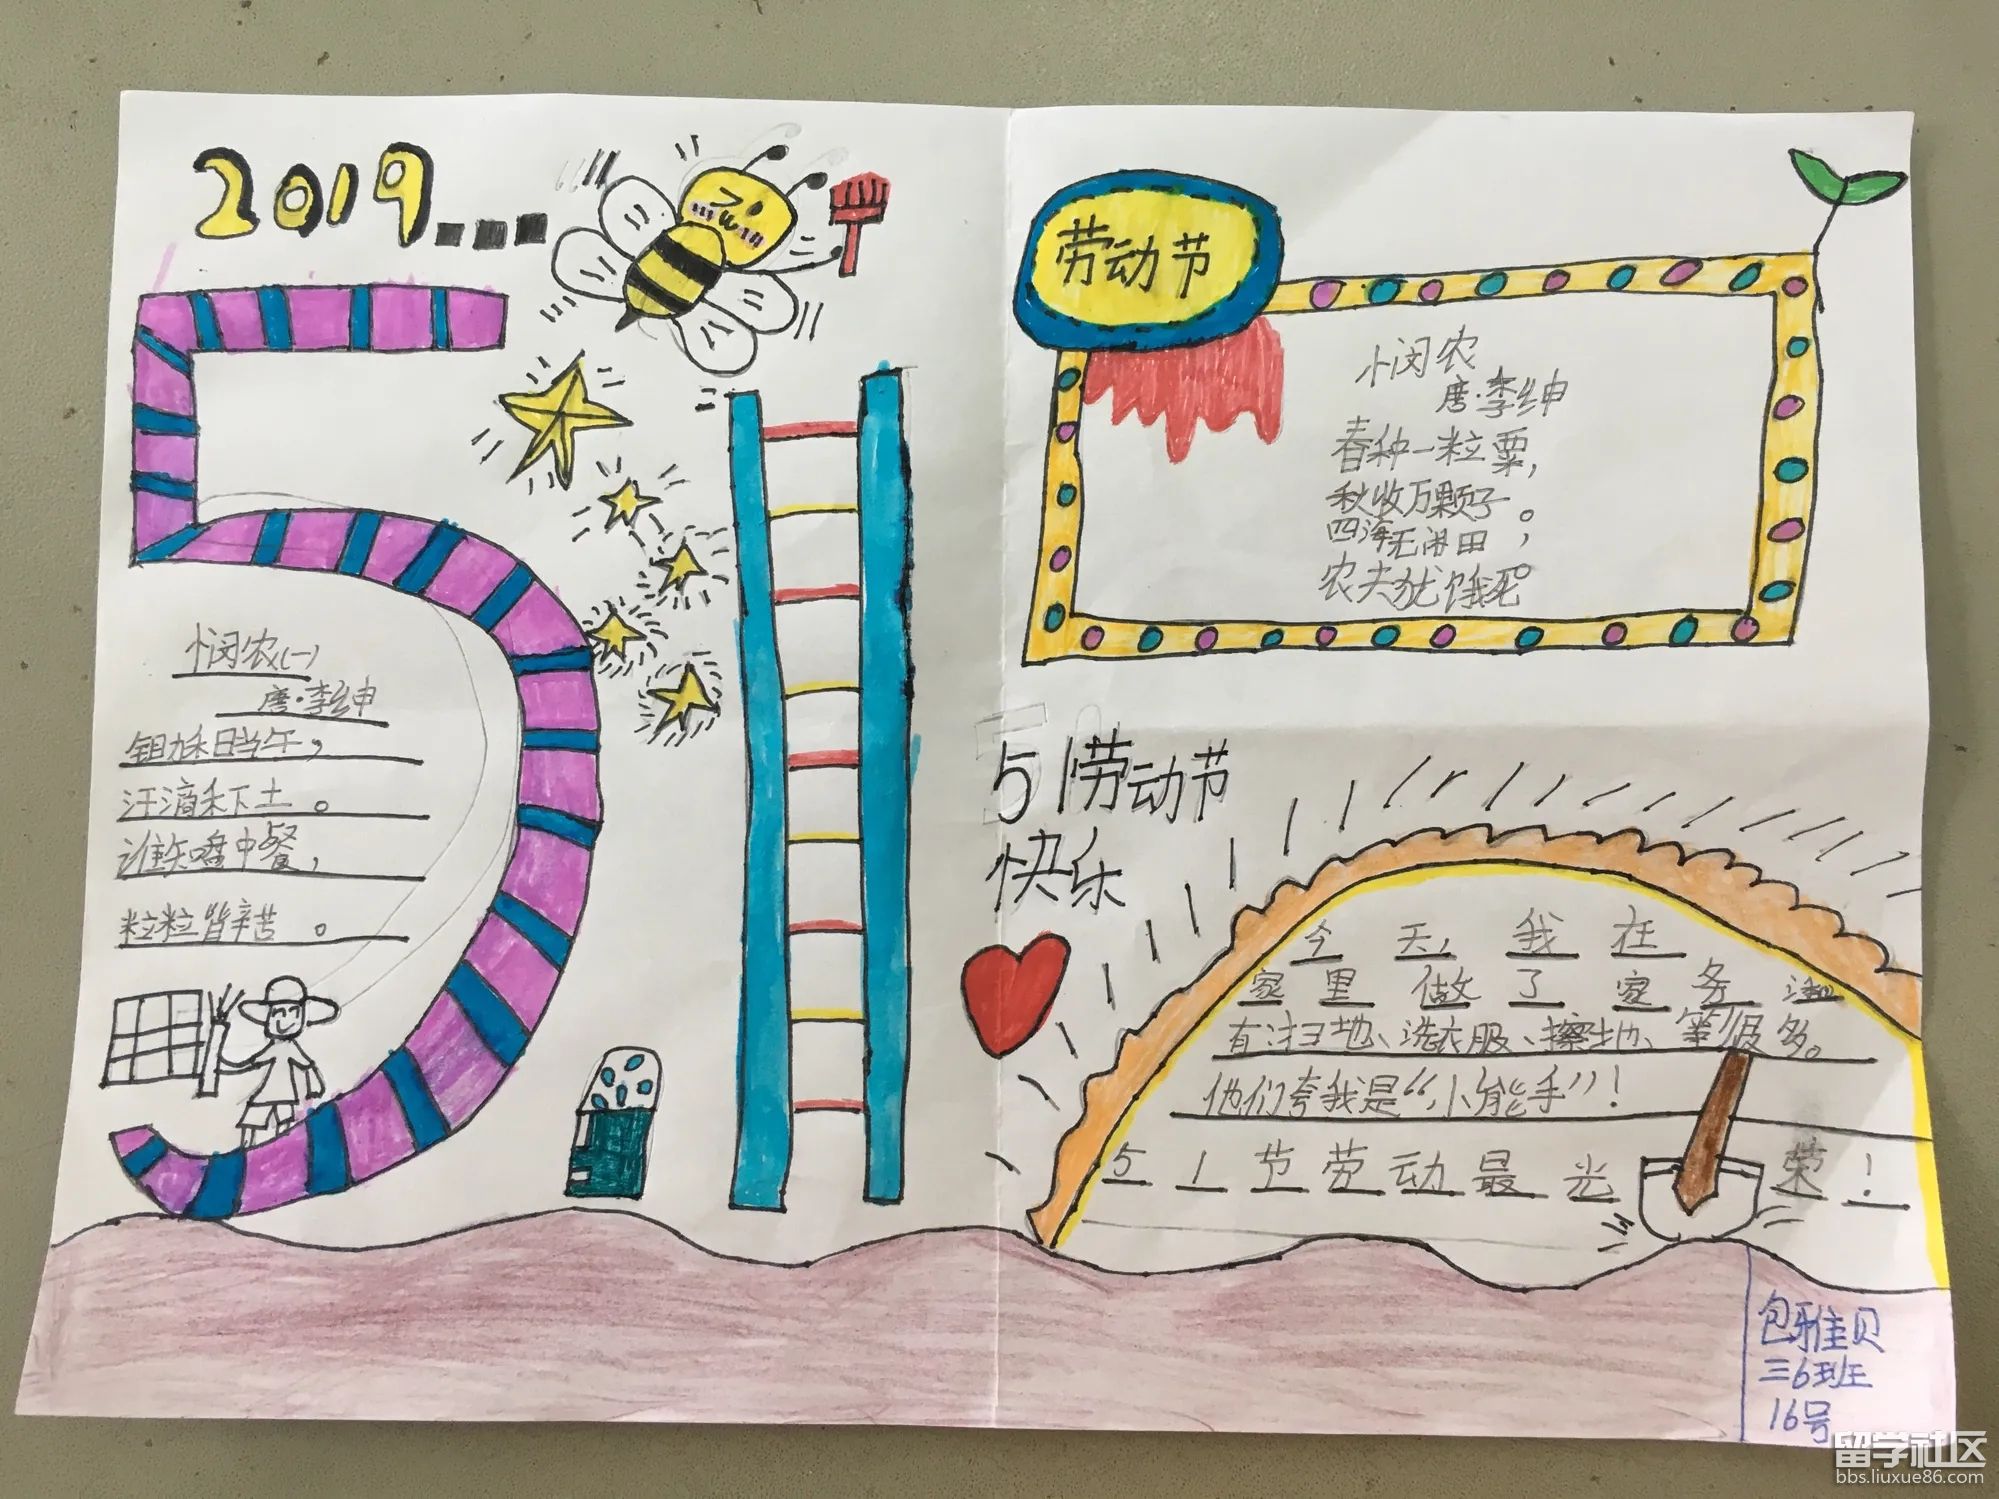 2019...
悯农(一)
唐·李绅
锄禾日当午，
汗滴禾下土。
谁知盘中餐，
粒粒皆辛苦。
劳动节
悯农
唐·李绅
春种一粒粟，
秋收万颗子。
四海无闲田，
农夫犹饿死。
51劳动节
快乐
今天，我在
家里做了家务活
有扫地、洗衣服、擦地、等很多。
他们夸我是“小能手”！
51节劳动最光荣！
包雅贝
三6班
16号
留学社区
bbs.liuxue86.com